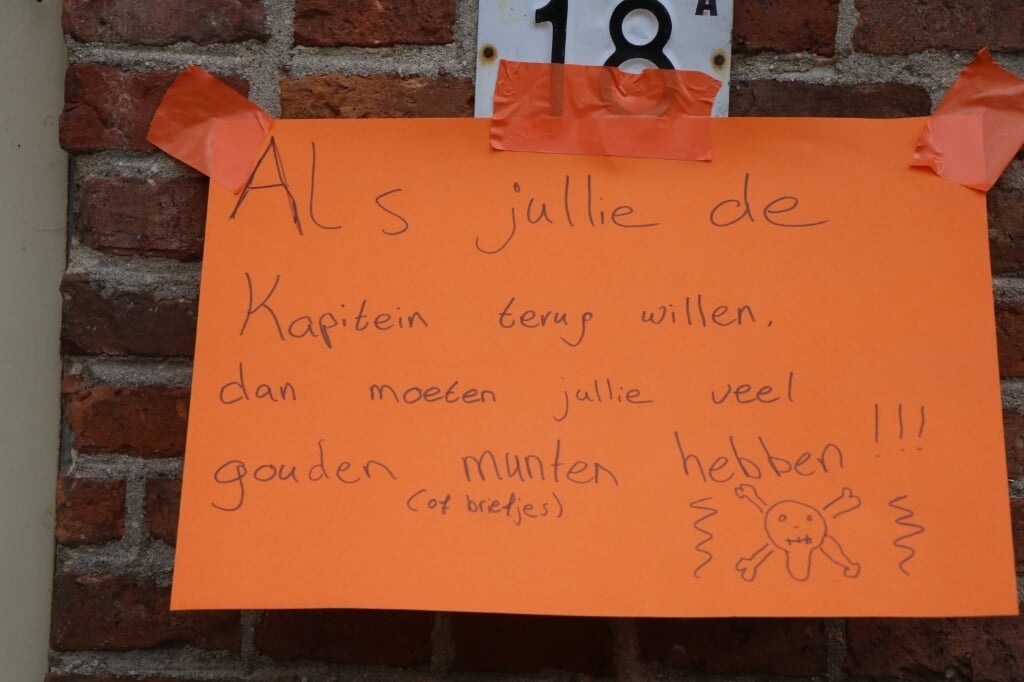 18 A
Als jullie de
Kapitein terug willen,
dan moeten jullie veel
gouden munten hebben !!!
(of briefjes)